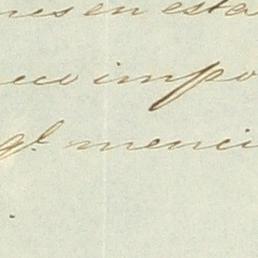 nes en esta
eco impo
q.e menci